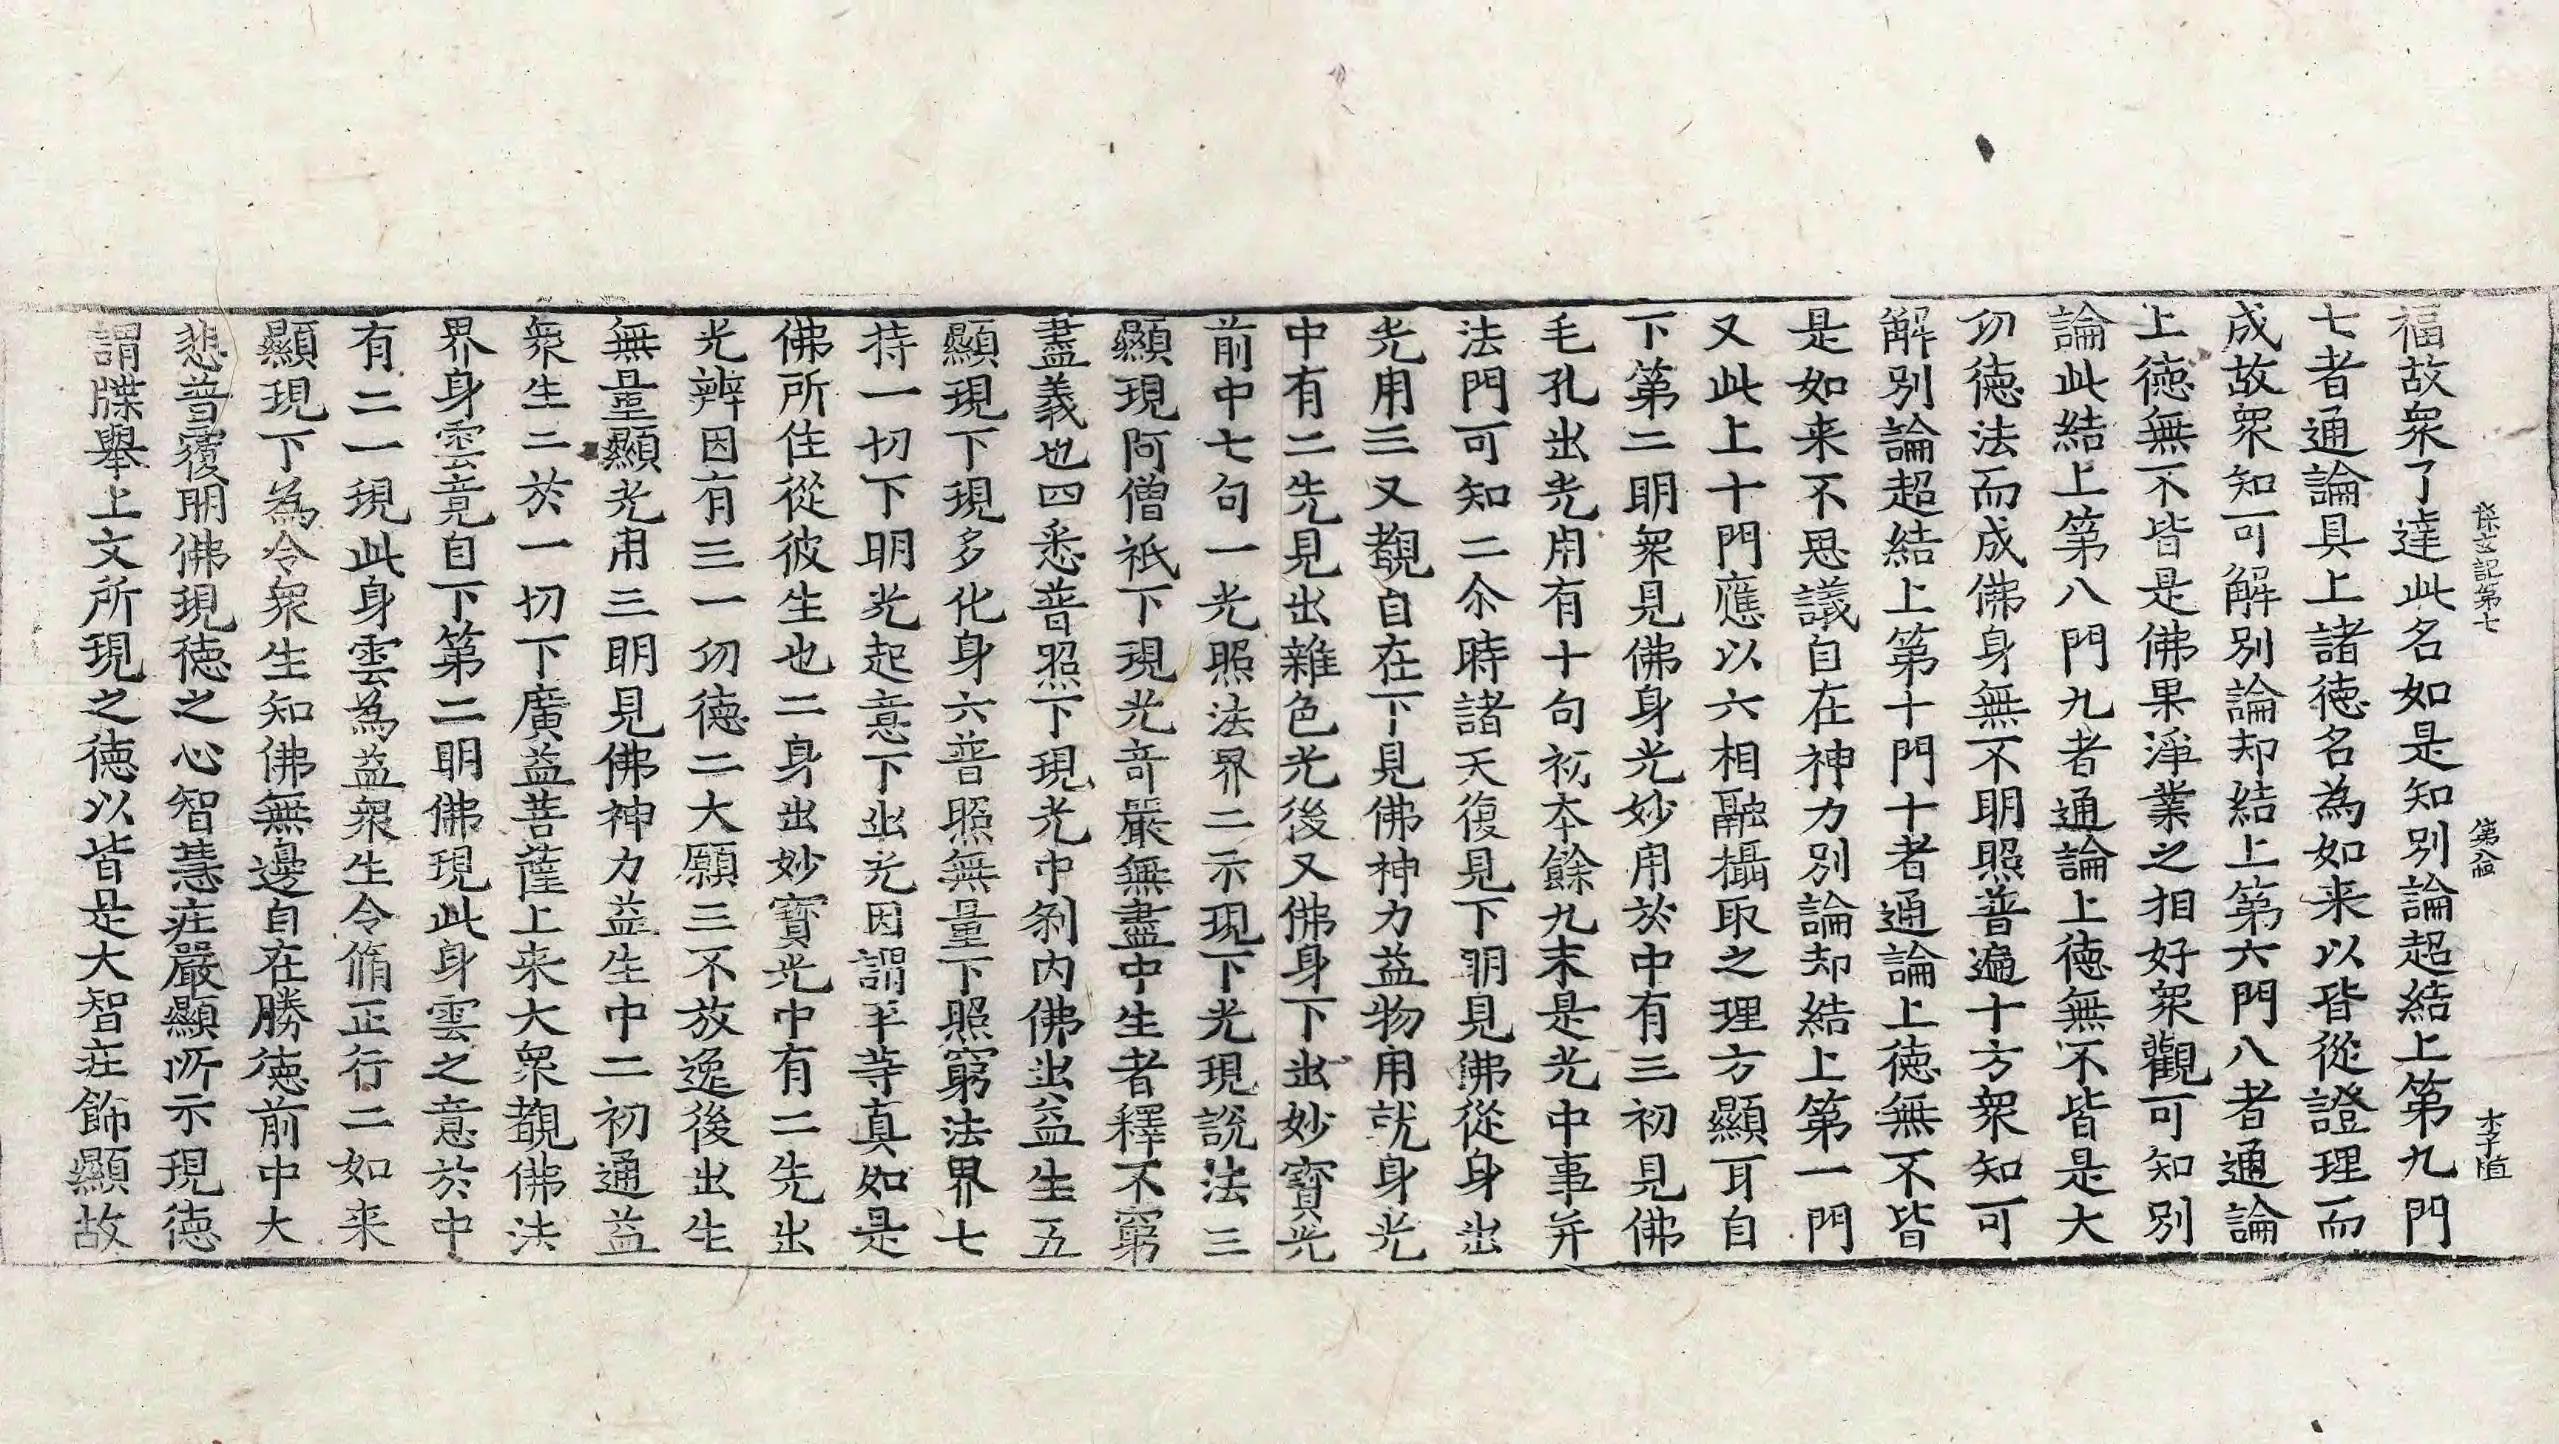 探玄記第七 第八 木子 亶
福故衆了達此名如是知別論超結上第九門
七者通論具上諸德名為如来以皆從證理而
成故衆知可解別論却結上第六門八者通論
上德無不皆是佛果淨業之相好衆觀可知別
論此結上第八門九者通論上德無不皆是大
功德法而成佛身無不明照普遍十方衆知可
解別論超結上第十門十者通論上德無不皆
是如来不思議自在神力別論却結上第一門
又此上十門應以六相融攝取之理方顯耳自
下第二明衆見佛身光妙用於中有三初見佛
毛孔出光用有十句初本餘九末是光中事并
法門可知二尒時諸天復見下明見佛從身出
光用三又覩自在下見佛神力益物用就身光
中有二先見出雜色光後又佛身下出妙寶光
前中七句一光照法界二示現下光現說法三
顯現阿僧祇下現光奇嚴無盡中生者釋不窮
盡義也四悉普照下現光中刹内佛出益生五
顯現下現多化身六普照無量下照窮法界七
持一切下明光起意下出光因謂平等真如是
佛所住從彼生也二身出妙寶光中有二先出
光辨因有三一功德二大願三不放逸後出生
無量顯光用三明見佛神力益生中二初通益
衆生二於一切下廣益菩薩上来大衆覩佛法
界身雲竟自下第二明佛現此身雲之意於中
有二一現此身雲為益衆生令脩正行二如来
顯現下為令衆生知佛無邊自在勝德前中大
悲普覆明佛現德之心智慧莊嚴顯所示現德
謂牒舉上文所現之德以皆是大智莊飾顯故